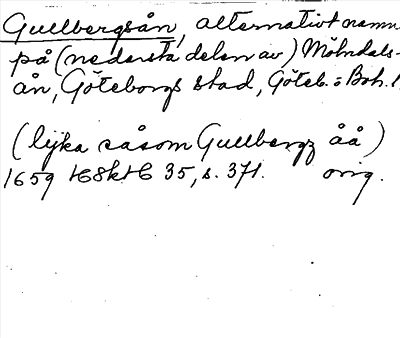 Gullbergsån, alternativt namn
på (nedersta delen av) Mölndals-
ån, Göteborgs stad, Göteb. o Boh. l
(lijka såsom Gullbergz åå)
1659 35, s. 371. orig.